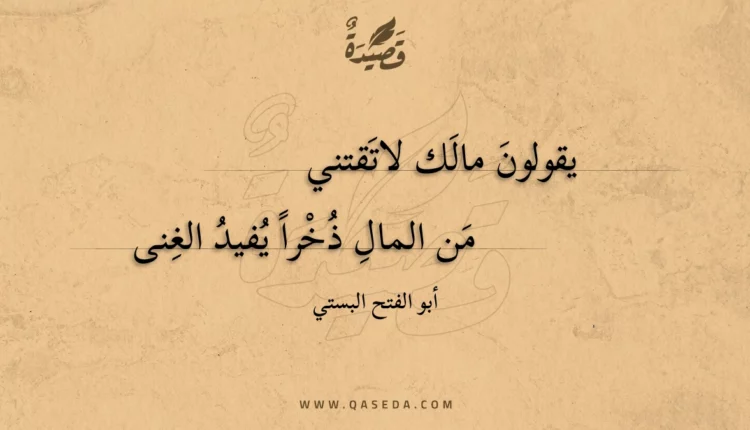 قَصِيْدَةٌ
يقولونَ مالَك لاتَقتني
مَن المالِ ذُخْراً يُفيدُ الغِنى
أبو الفتح البستي
WWW.QASEDA.COM